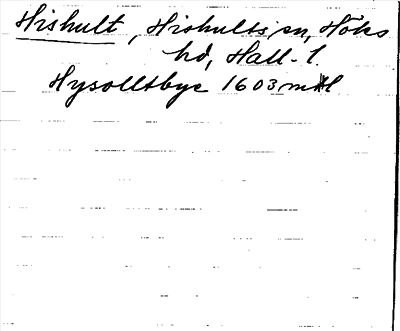 Hishult, Hishults sn, Höks
hd, Hall-l.
Hysolltbye 1603 mtl